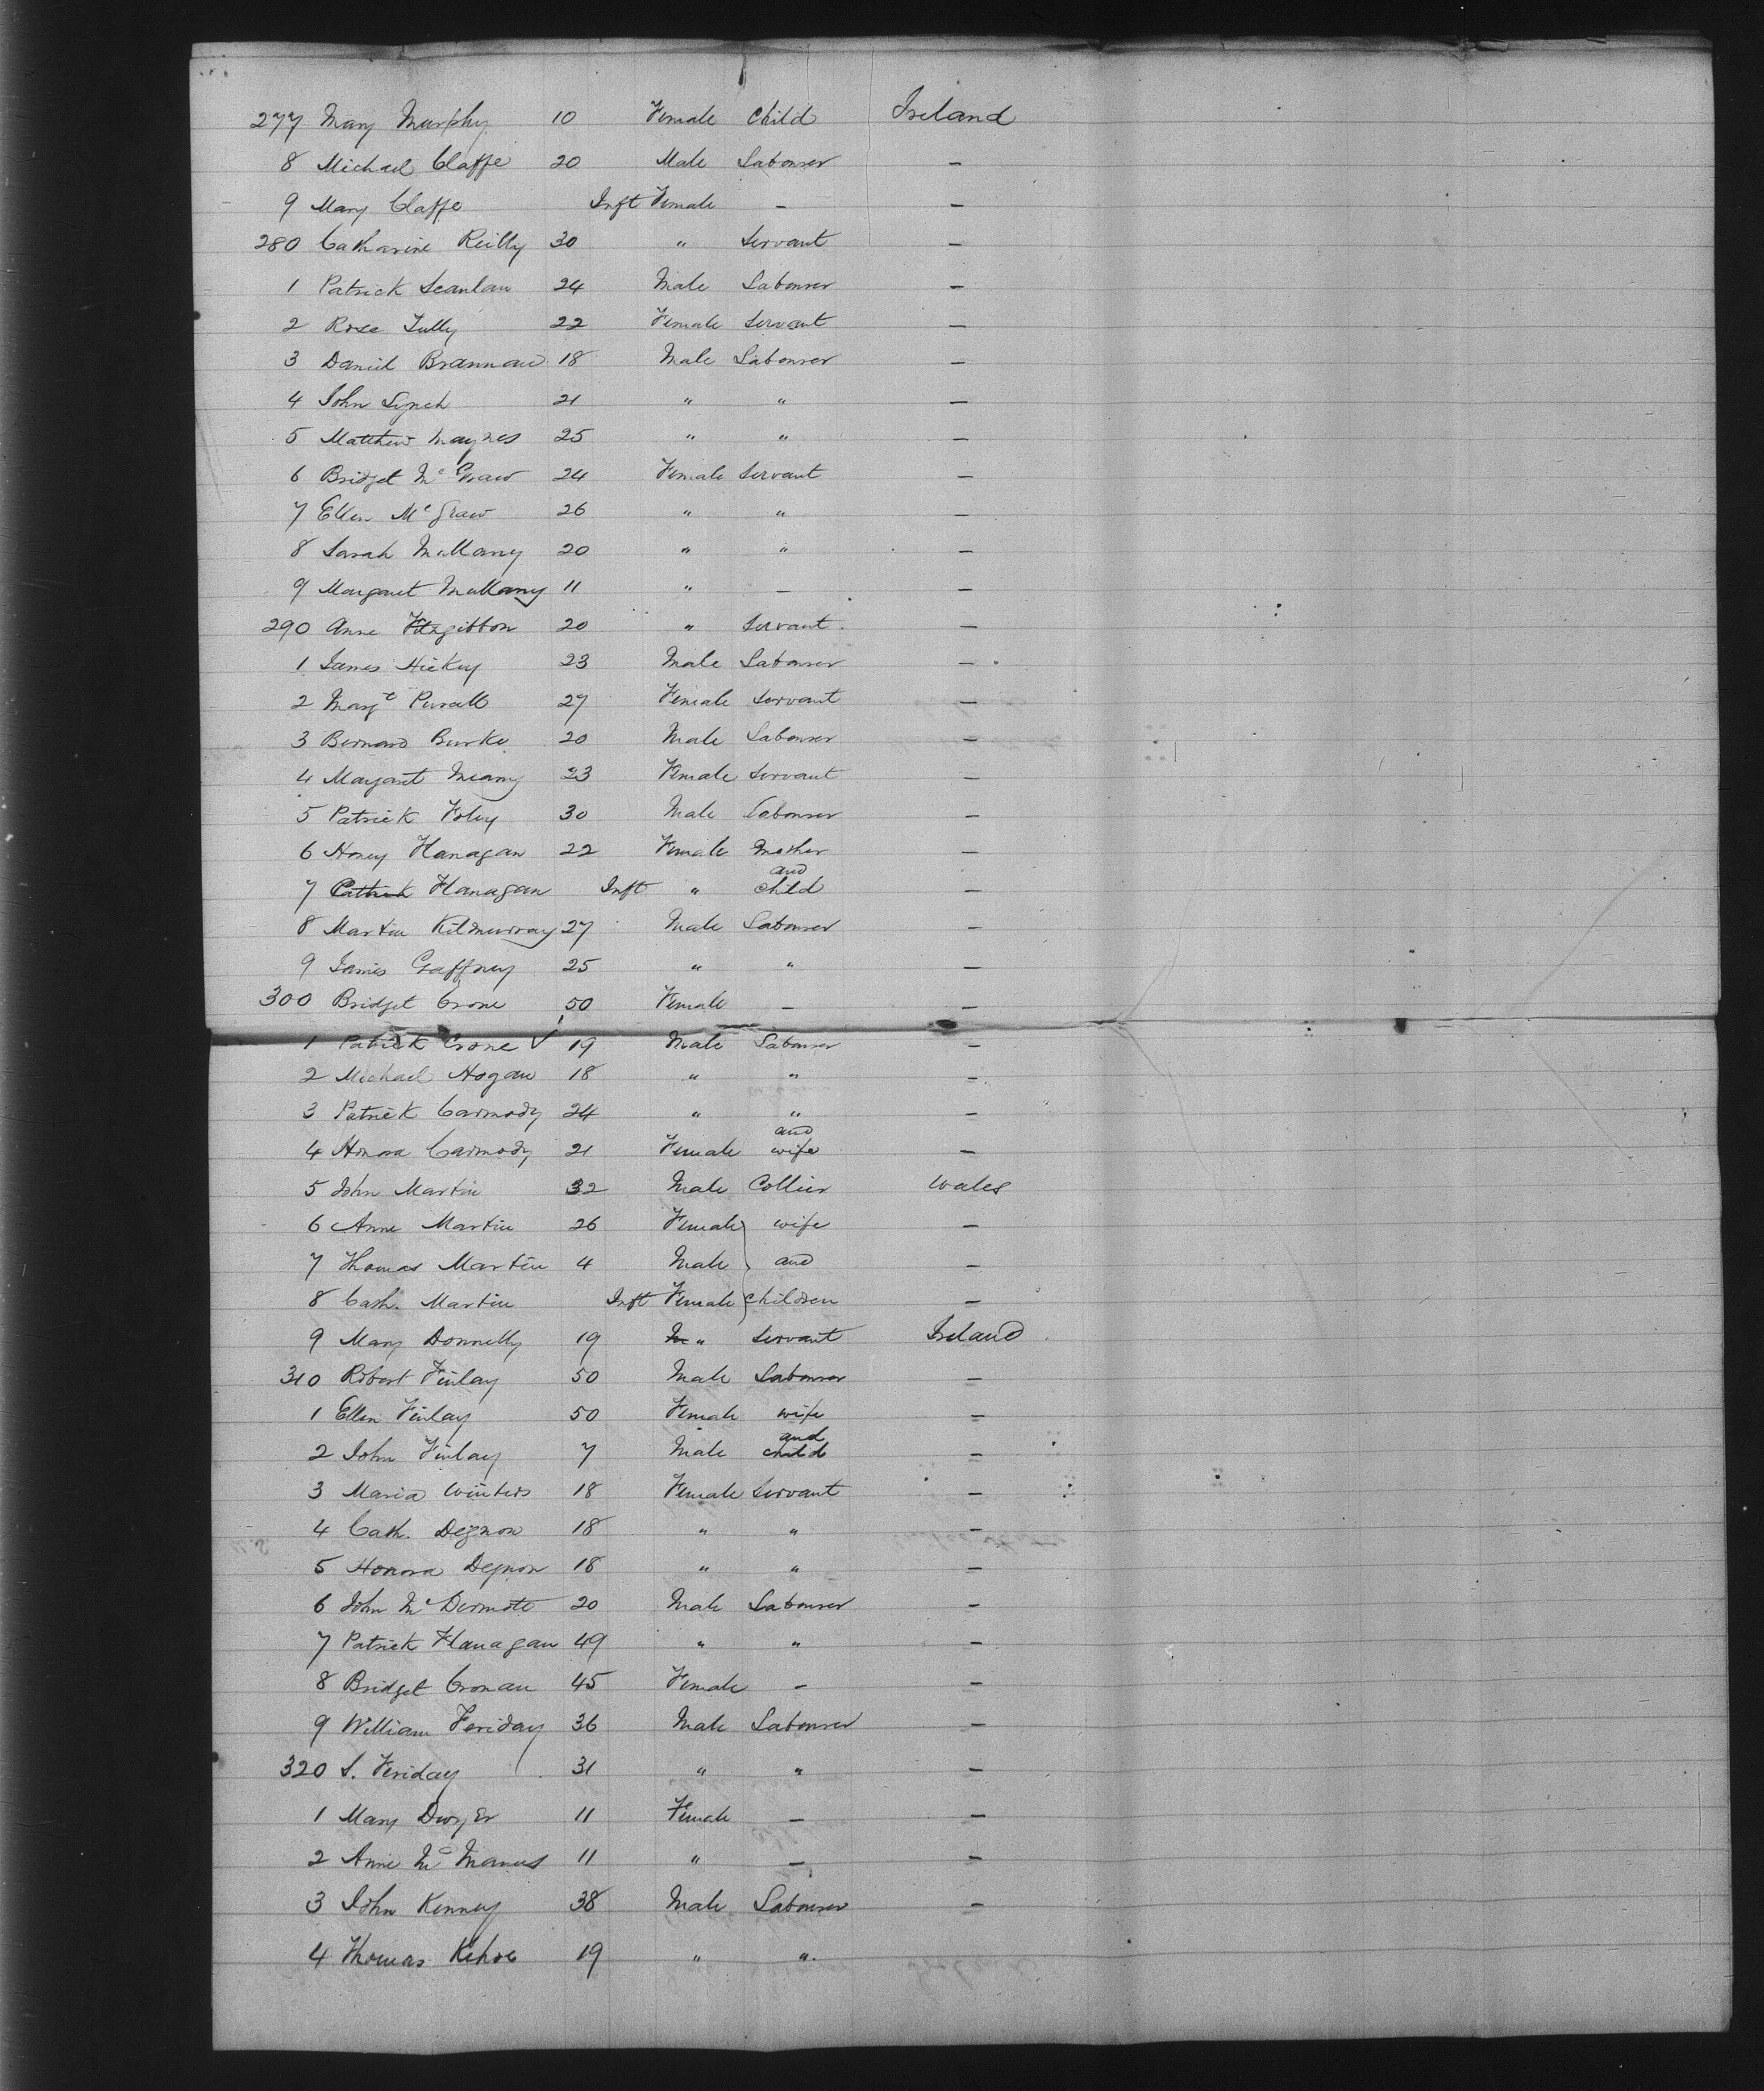 277 Mary Murphy 10 Female Child Ireland
8 Michael Claffe 20 Male Labourer —
9 Mary Claffe Inft Female — —
280 Catharine Reilly 30 " Servant —
1 Patrick Scanlan 24 Male Labourer —
2 Rose Tully 22 Female Servant —
3 Daniel Brannan 18 Male Labourer —
4 John Lynch 21 " " —
5 Matthew 25 " " —
6 Bridget McGraw 24 Female Servant —
7 Ellen McGraw 26 " " —
8 Sarah Mullany 20 " " —
9 Margaret Mullany 11 " — —
290 Anne Fitzgibbon 20 " Servant —
1 James Hickey 23 Male Labourer —
2 Margt Purcell 27 Female Servant —
3 Bernard Burke 20 Male Labourer —
4 Margaret Meany 23 Female Servant —
5 Patrick Foley 30 Male Labourer —
6 Honey Flanagan 22 Female Mother —
and
7 Patrick Flanagan Inft " child —
8 Martin Kilmurray 27 Male Labourer —
9 James Gaffney 25 " " —
300 Bridget Crone 50 Female — —
1 Patrick Crone √ 19 Male Labourer —
2 Michael Hogan 18 " " —
3 Patrick Carmody 24 " " —
and
4 Honora Carmody 21 Female wife —
5 John Martin 32 Male Collier Wales
6 Anne Martin 26 Female wife —
7 Thomas Martin 4 Male and —
8 Cath. Martin Inft Female children —
9 Mary Donnelly 19 M " Servant Ireland
310 Robert Finlay 50 Male Labourer —
1 Ellen Finlay 50 Female wife —
and
2 John Finlay 7 Male child —
3 Maria Winters 18 Female Servant —
4 Cath. Dignon 18 " " —
5 Honora Dignon 18 " " —
6 John McDermott 20 Male Labourer —
7 Patrick Flanagan 49 " " —
8 Bridget Cronan 45 Female — —
9 William Feriday 36 Male Labourer —
320 S. Feriday 31 " " —
1 Mary Dwyer 11 Female — —
2 Anne McManus 11 " — —
3 John Kenney 38 Male Labourer —
4 Thomas Kehoe 19 " "